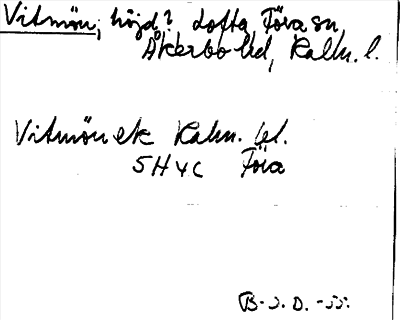 Vitmön, höjd? Lofta, Föra sn
Åkerbo hd, Kalm. l.
Vitmön ek Kalm. bl.
5H4c Föra
B. J. D. -55.